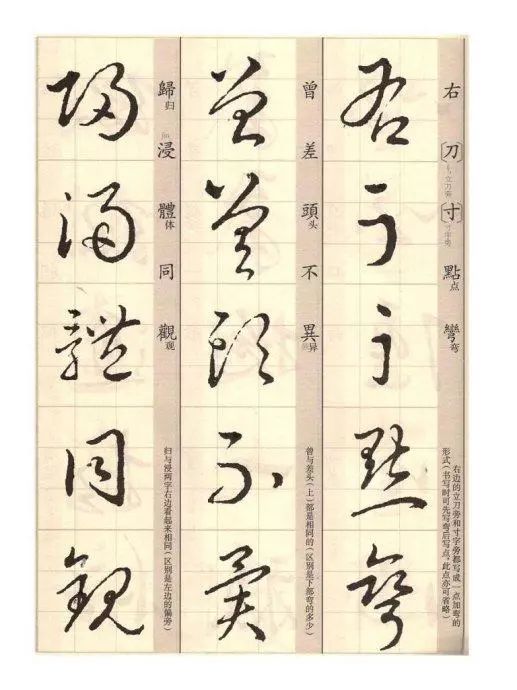 右刀寸點彎
右〔刀〕〔寸〕點点彎弯
右边的立刀旁和寸字旁都写成一点加弯的
形式（书写时可先写弯后写点，此点亦可省略）
曾差頭不異
曾差頭头不異异
曾与差头（上）都是相同的（区别是下部弯的多少）
歸浸體同觀
歸归浸jìn體体同觀观
归与浸两字右边看起来相同（区别是左边的偏旁）